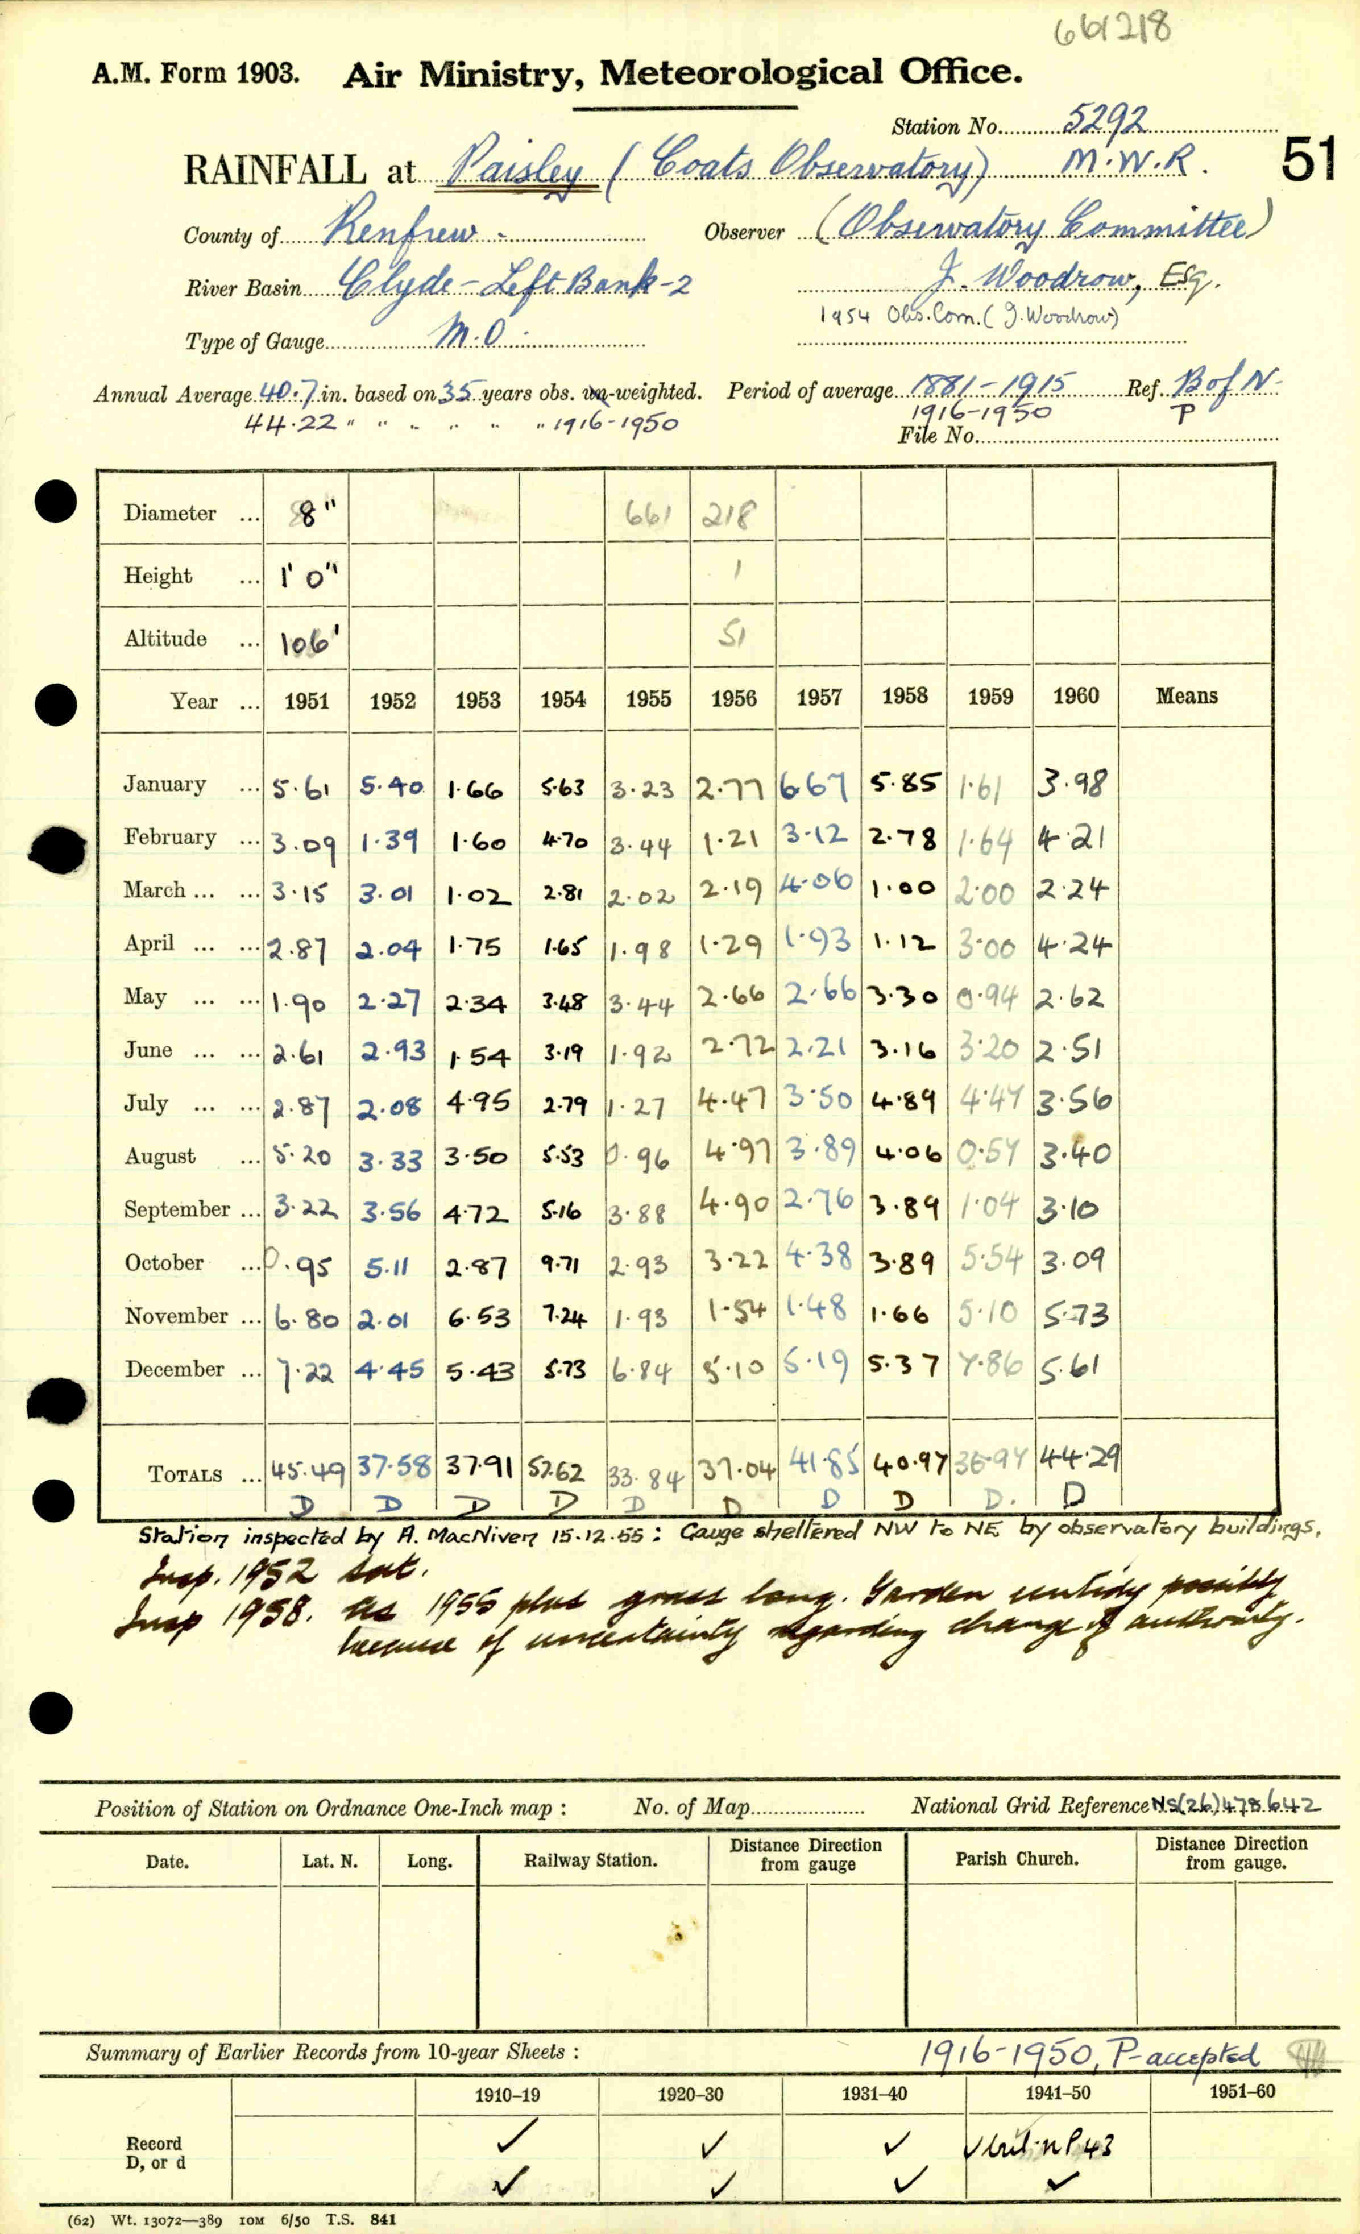 661218
A.M. Form 1903. Air Ministry, Meteorological Office.
Station No. 5292
RAINFALL at Paisley (Coats Observatory) M.W.R. 51
County of Renfrew. Observer (Observatory Committee)
River Basin Clyde-Left Bank-2 J. Woodrow, Esq.
1954 Obs. Com. (J. Woodrow)
Type of Gauge M.O.
Annual Average 40.7 in. based on 35 years obs. un-weighted. Period of average 1881-1915 Ref. B of N.
44.22 " " " " " " 1916-1950 1916-1950 P
File No.
Diameter ... 8" 661 218
Height ... 1' 0" 1
Altitude ... 106' 51
Year ... 1951 1952 1953 1954 1955 1956 1957 1958 1959 1960 Means
January ... 5.61 5.40 1.66 5.63 3.23 2.77 6.67 5.85 1.61 3.98
February ... 3.09 1.39 1.60 4.70 3.44 1.21 3.12 2.78 1.64 4.21
March ... ... 3.15 3.01 1.02 2.81 2.02 2.19 4.06 1.00 2.00 2.24
April ... ... 2.87 2.04 1.75 1.65 1.98 1.29 1.93 1.12 3.00 4.24
May ... ... 1.90 2.27 2.34 3.48 3.44 2.66 2.66 3.30 0.94 2.62
June ... ... 2.61 2.93 1.54 3.19 1.92 2.72 2.21 3.16 3.20 2.51
July ... ... 2.87 2.08 4.95 2.79 1.27 4.47 3.50 4.89 4.47 3.56
August ... 5.20 3.33 3.50 5.53 0.96 4.97 3.89 4.06 0.57 3.40
September ... 3.22 3.56 4.72 5.16 3.88 4.90 2.76 3.89 1.04 3.10
October ... 0.95 5.11 2.87 9.71 2.93 3.22 4.38 3.89 5.54 3.09
November ... 6.80 2.01 6.53 7.24 1.93 1.54 1.48 1.66 5.10 5.73
December ... 7.22 4.45 5.43 5.73 6.84 5.10 5.19 5.37 7.86 5.61
TOTALS ... 45.49 37.58 37.91 57.62 33.84 37.04 41.85 40.97 36.97 44.29
D D D D D D D D D. D
Station inspected by A. MacNiven 15.12.55: Gauge sheltered NW to NE by observatory buildings.
Insp. 1952 sat.
Insp 1958. As 1955 plus grass long. Garden untidy possibly
because of uncertainty regarding change of authority.
Position of Station on Ordnance One-Inch map : No. of Map National Grid Reference NS(26)478642
Date. Lat. N. Long. Railway Station. Distance Direction from gauge Parish Church. Distance Direction from gauge.
Summary of Earlier Records from 10-year Sheets : 1916-1950, P-accepted
1910–19 1920–30 1931–40 1941–50 1951–60
Record ✓ ✓ ✓ ✓
D, or d ✓ ✓ ✓ ✓
(62) Wt. 13072—389 10M 6/50 T.S. 841